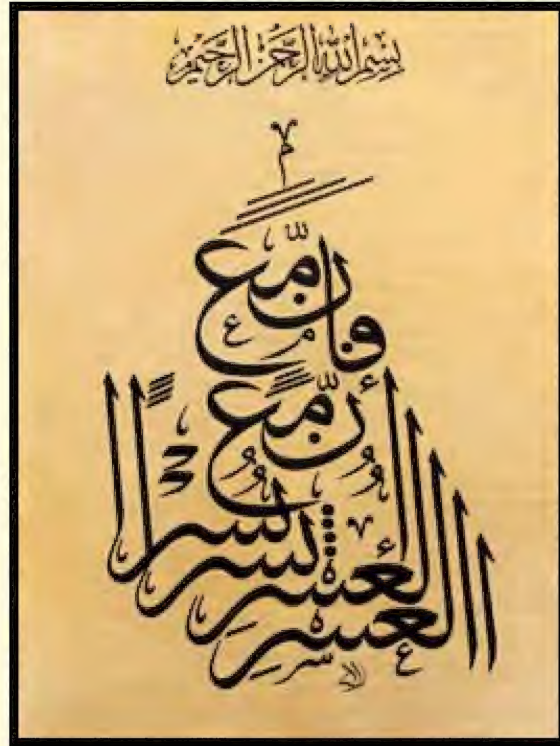 بسم الله الرحمن الرحيم
فإن مع العسر يسرا
إن مع العسر يسرا